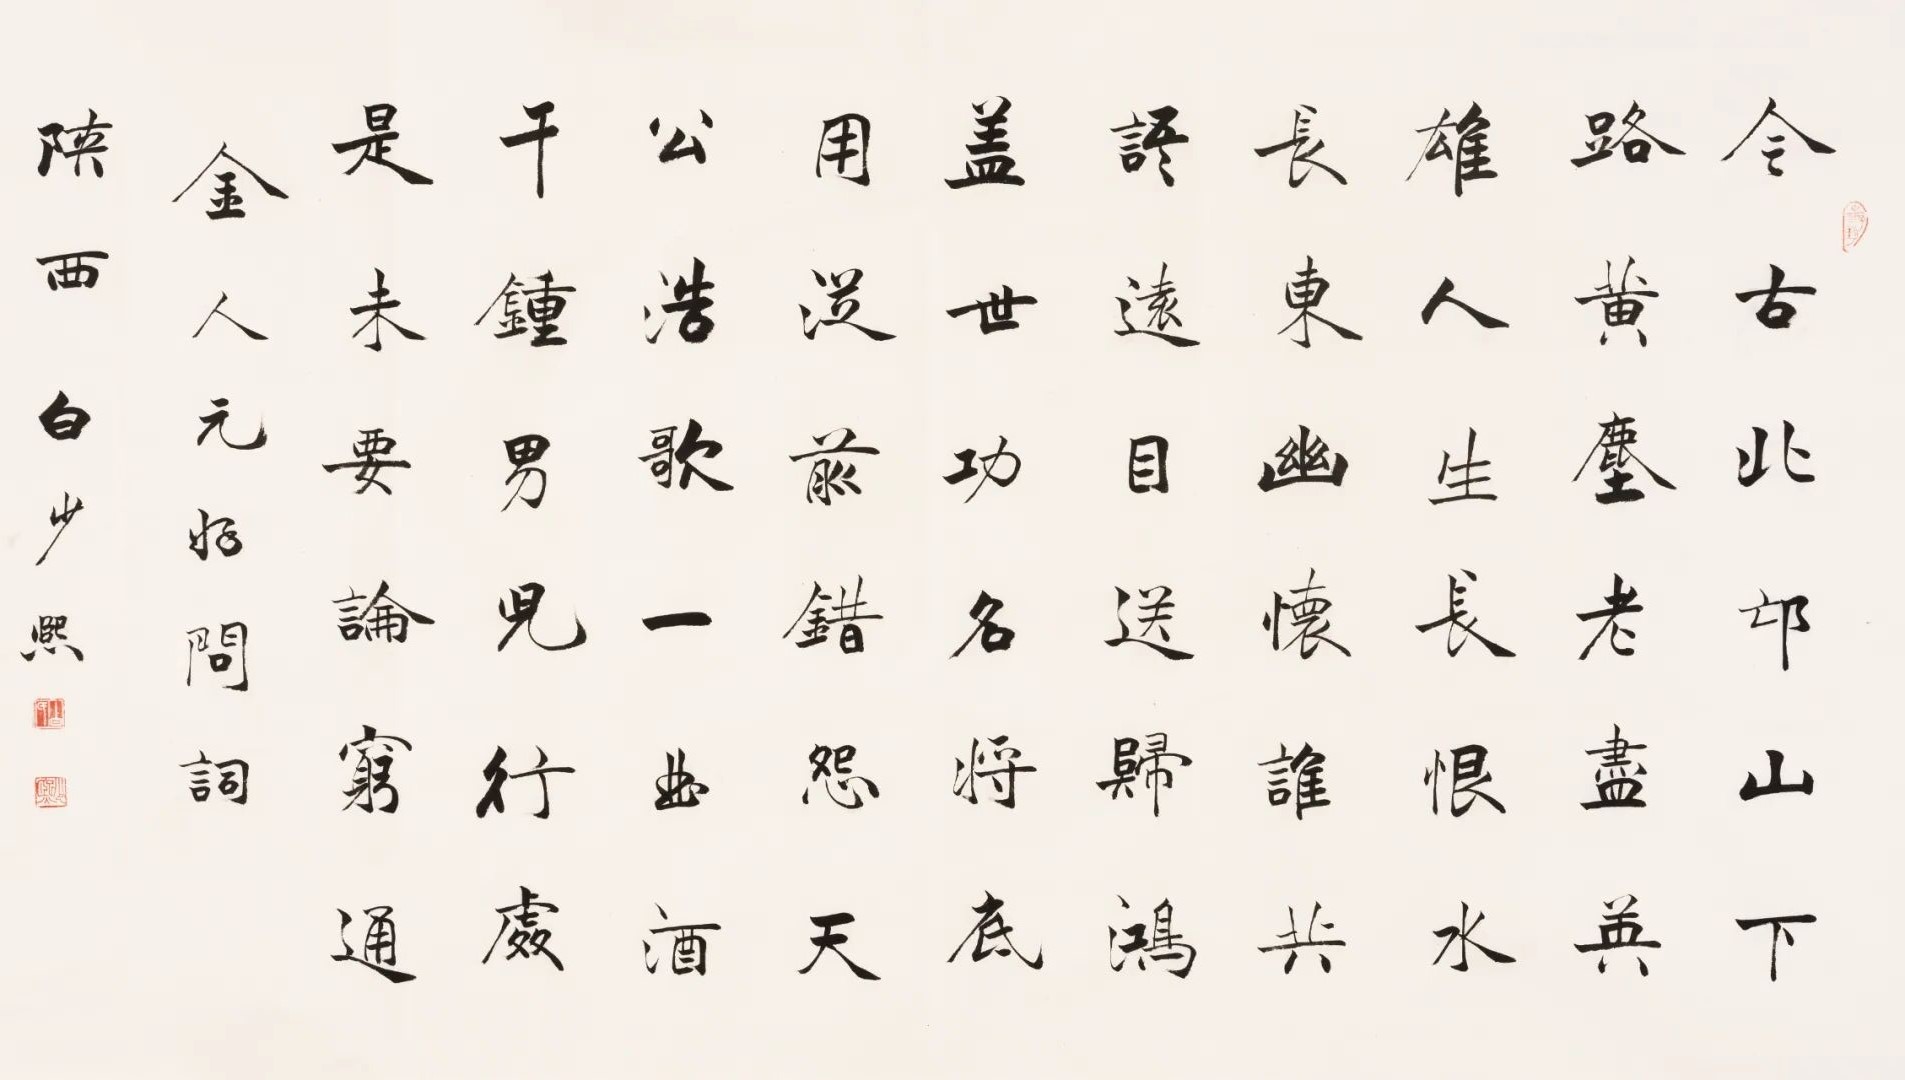 今古北邙山下
路黄塵老盡英
雄人生長恨水
長東幽懷誰共
語遠目送歸鴻
盖世功名将底
用從前錯怨天
公浩歌一曲酒
千鍾男兒行處
是未要論窮通
金人元好問詞
陝西白少熙